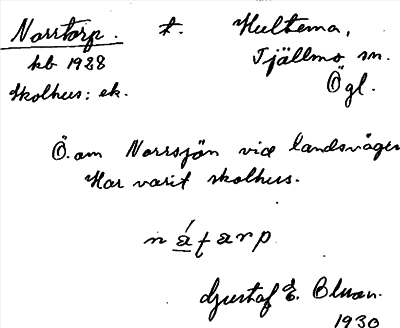 Norrtorp. t. Hultema,
kb 1928 Tjällmo sn.
Skolhus: ek. Ögl.
Ö. om Norrsjön vid landsvägen
Har varit skolhus.
Gustaf E.
1930